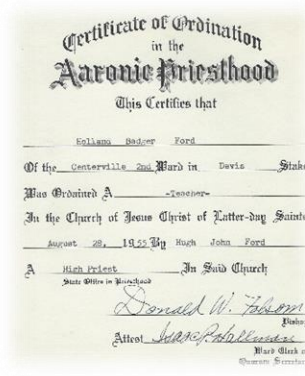 Certificate of Ordination
in the
Aaronic Priesthood
This Certifies that
Holland Badger Ford
Of the Centerville 2nd Ward in Davis Stake
Was Ordained A -Teacher-
In the Church of Jesus Christ of Latter-day Saints
August 28, 1955 By Hugh John Ford
A High Priest In Said Church
State Office in Priesthood
Donald W. Folsom
Bisho
Attest Isaac P. Hallman
Ward Clerk o
Quorum Secretar